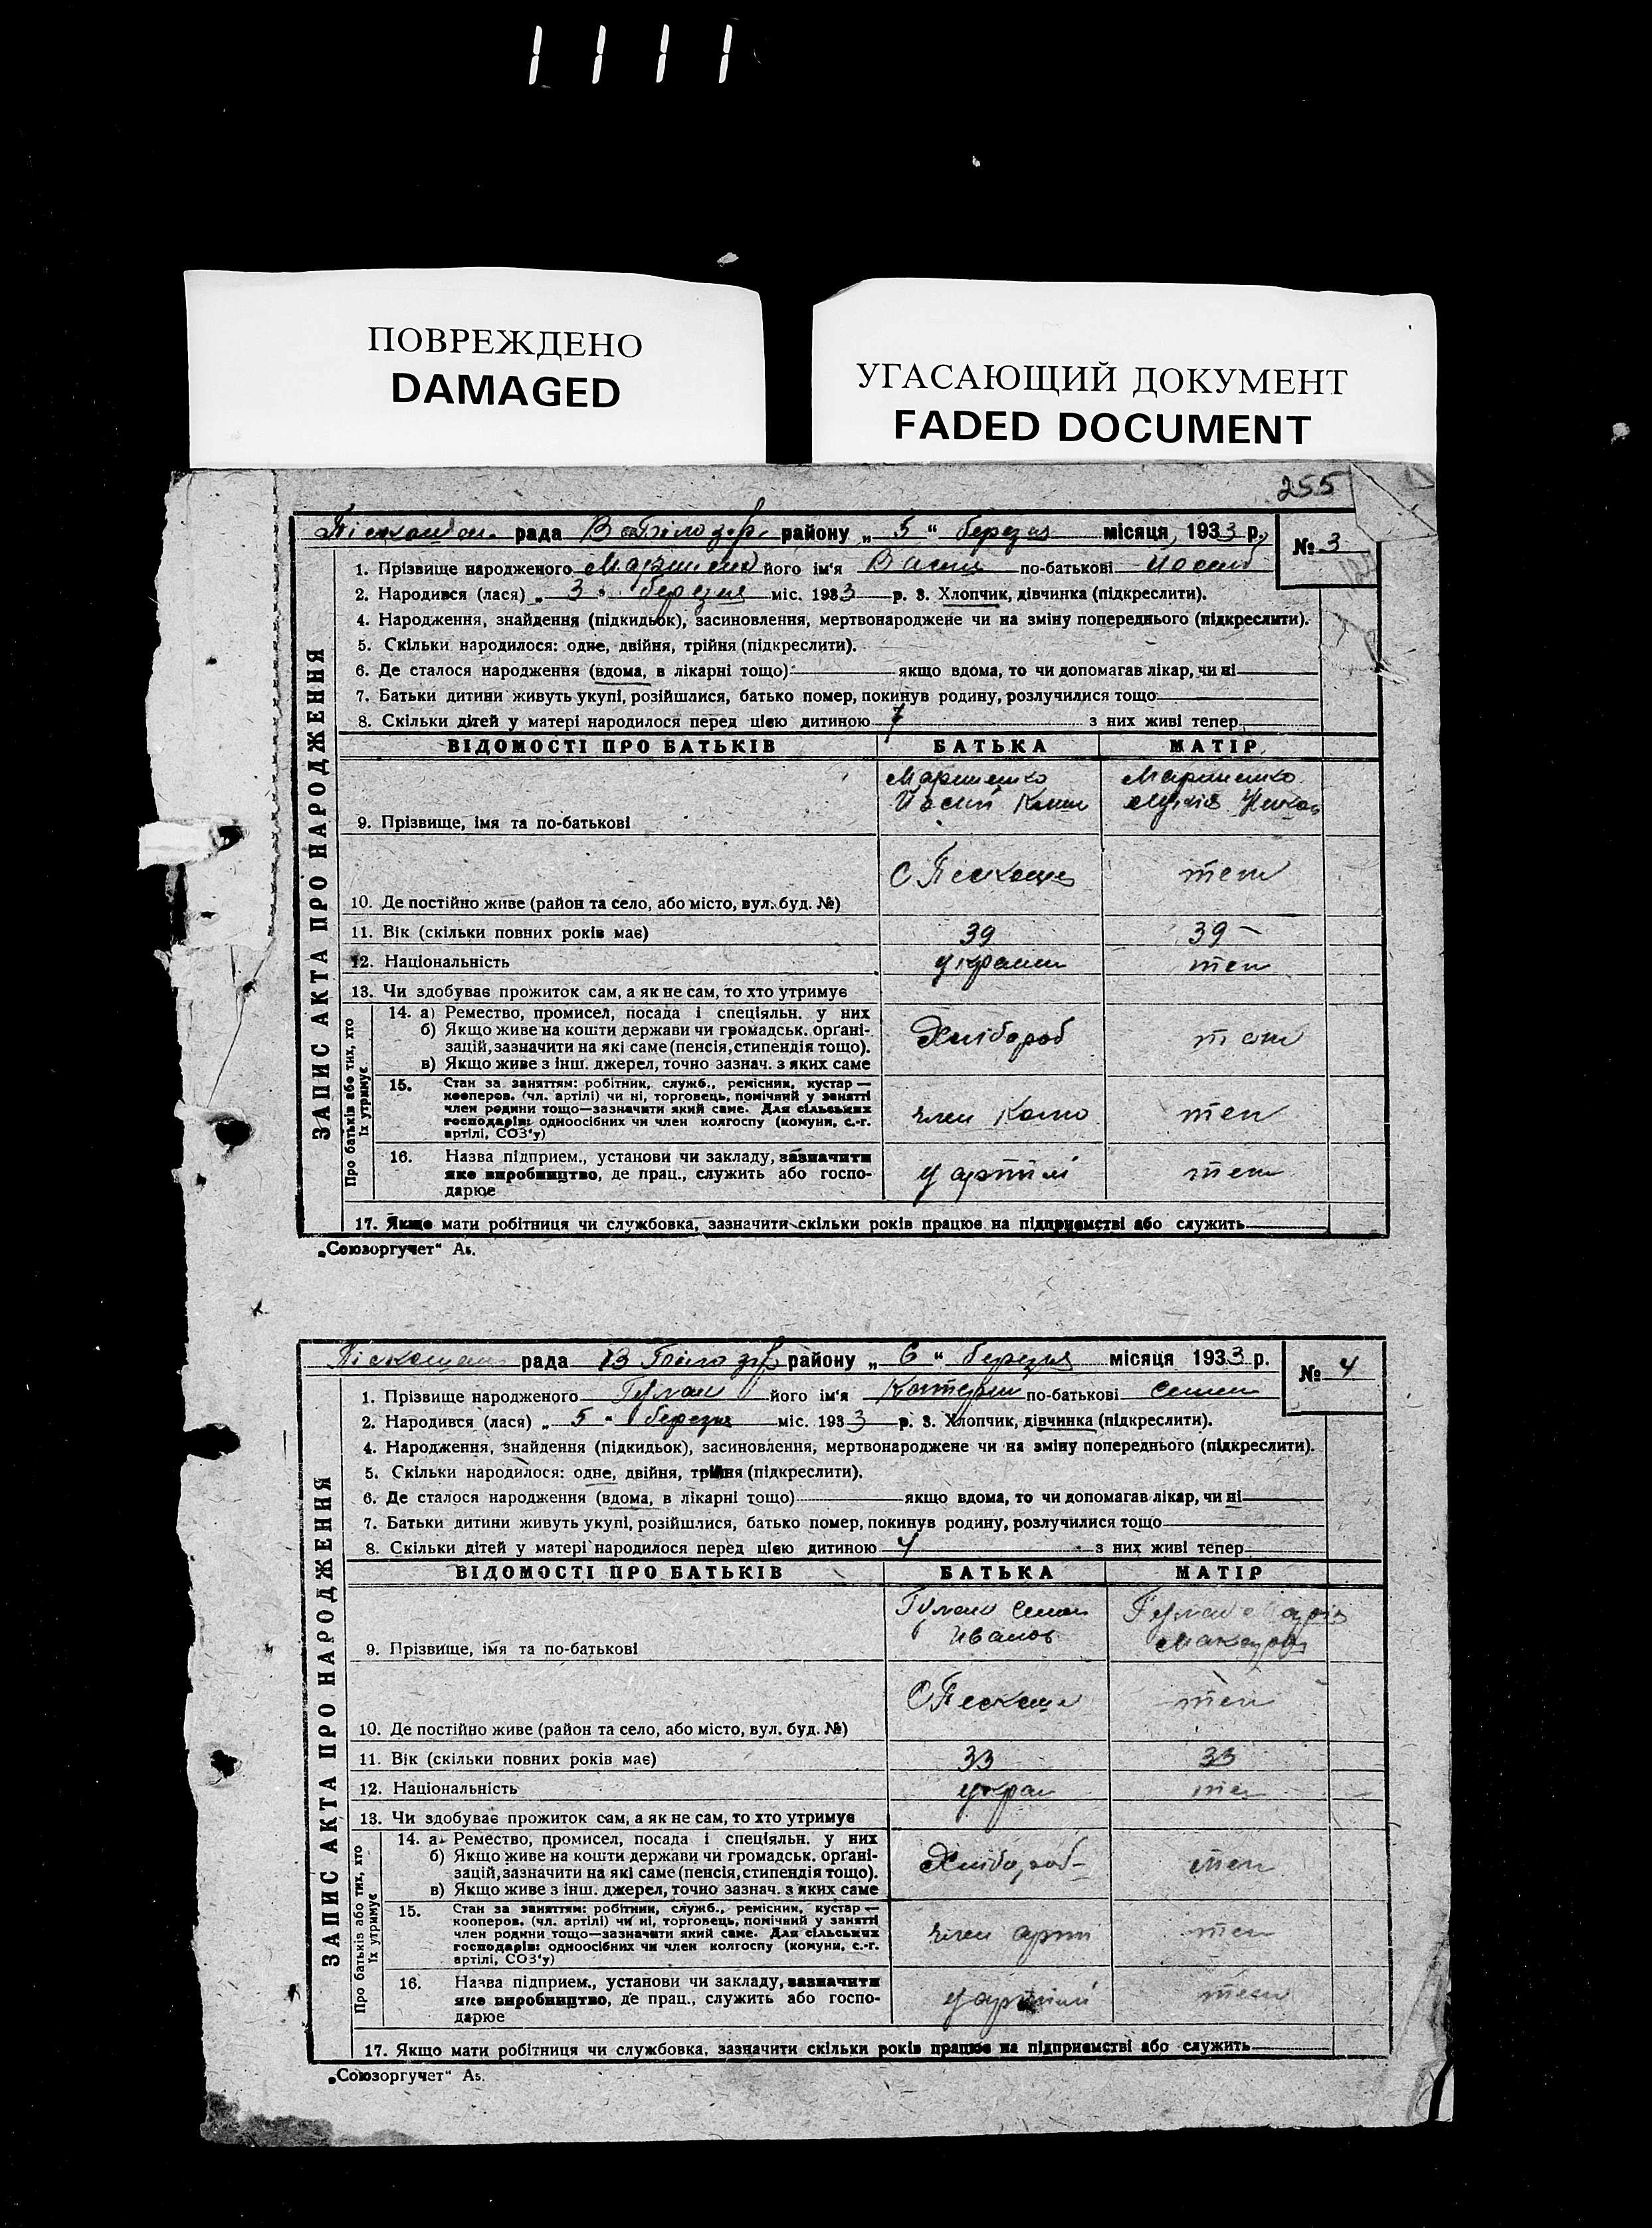 1111
ПОВРЕЖДЕНО
DAMAGED
УГАСАЮЩИЙ ДОКУМЕНТ
FADED DOCUMENT
255
рада В Білозер району „ 5 “ березня місяця, 1933 р.
№ 3
ЗАПИС АКТА ПРО НАРОДЖЕННЯ
1. Прізвище народженого його ім'я Васил по-батькові
2. Народився (лася) „ 3 “ березня міс. 1933 р. 3. Хлопчик, дівчинка (підкреслити).
4. Народження, знайдення (підкидьок), засиновлення, мертвонароджене чи на зміну попереднього (підкреслити).
5. Скільки народилося: одне, двійня, трійня (підкреслити).
6. Де сталося народження (вдома, в лікарні тощо) якщо вдома, то чи допомагав лікар, чи ні
7. Батьки дитини живуть укупі, розійшлися, батько помер, покинув родину, розлучилися тощо
8. Скільки дітей у матері народилося перед цією дитиною 7 з них живі тепер
ВІДОМОСТІ ПРО БАТЬКІВ БАТЬКА МАТІР
9. Прізвище, імя та по-батькові
10. Де постійно живе (район та село, або місто, вул. буд. №)
11. Вік (скільки повних років має) 39 39
12. Національність украин теж
13. Чи здобуває прожиток сам, а як не сам, то хто утримує
Про батьків або тих, хто їх утримує
14. а) Ремество, промисел, посада і спеціяльн. у них
б) Якщо живе на кошти держави чи громадськ. орґані-
зацій, зазначити на які саме (пенсія, стипендія тощо).
в) Якщо живе з інш. джерел, точно зазнач. з яких саме
Хлібороб теж
15. Стан за заняттям: робітник, служб., ремісник, кустар —
кооперов. (чл. артілі) чи ні, торговець, помічний у занятті
член родини тощо—зазначити який саме. Для сільських
господарів: одноосібних чи член колгоспу (комуни, с.-г.
артілі, СОЗ'у)
член теж
16. Назва підприєм., установи чи закладу, зазначити
яке виробництво, де прац., служить або госпо-
дарює
у артілі теж
17. Якщо мати робітниця чи службовка, зазначити скільки років працює на підприємстві або служить
„Союзоргучет“ А5.
рада В Білозер району „ 6 “ березня місяця 1933 р.
№ 4
ЗАПИС АКТА ПРО НАРОДЖЕННЯ
1. Прізвище народженого його ім'я Катерин по-батькові Семен
2. Народився (лася) „ 5 “ березня міс. 1933 р. 3. Хлопчик, дівчинка (підкреслити).
4. Народження, знайдення (підкидьок), засиновлення, мертвонароджене чи на зміну попереднього (підкреслити).
5. Скільки народилося: одне, двійня, трійня (підкреслити).
6. Де сталося народження (вдома, в лікарні тощо) якщо вдома, то чи допомагав лікар, чи ні
7. Батьки дитини живуть укупі, розійшлися, батько помер, покинув родину, розлучилися тощо
8. Скільки дітей у матері народилося перед цією дитиною 4 з них живі тепер
ВІДОМОСТІ ПРО БАТЬКІВ БАТЬКА МАТІР
Семен
Иванов
9. Прізвище, імя та по-батькові
10. Де постійно живе (район та село, або місто, вул. буд. №) теж
11. Вік (скільки повних років має) 33 33
12. Національність украи теж
13. Чи здобуває прожиток сам, а як не сам, то хто утримує
Про батьків або тих, хто їх утримує
14. а. Ремество, промисел, посада і спеціяльн. у них
б) Якщо живе на кошти держави чи громадськ. орґані-
зацій, зазначити на які саме (пенсія, стипендія тощо).
в) Якщо живе з інш. джерел, точно зазнач. з яких саме
Хлібороб теж
15. Стан за заняттям: робітник, служб., ремісник, кустар —
кооперов. (чл. артілі) чи ні, торговець, помічний у занятті
член родини тощо—зазначити який саме. Для сільських
господарів: одноосібних чи член колгоспу (комуни, с.-г.
артілі, СОЗ'у)
член арти теж
16. Назва підприєм., установи чи закладу, зазначити
яке виробництво, де прац., служить або госпо-
дарює
у артілі теж
17. Якщо мати робітниця чи службовка, зазначити скільки років працює на підприємстві або служить
„Союзоргучет“ А5.